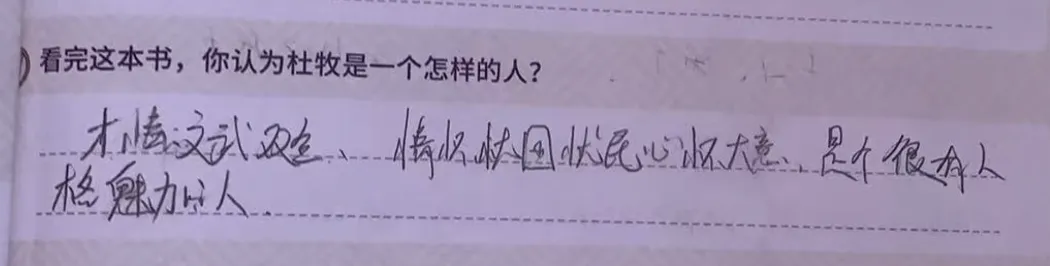 看完这本书，你认为杜牧是一个怎样的人？
才情文武双全、情怀忧国忧民心怀大意、是个很有人
格魅力的人.